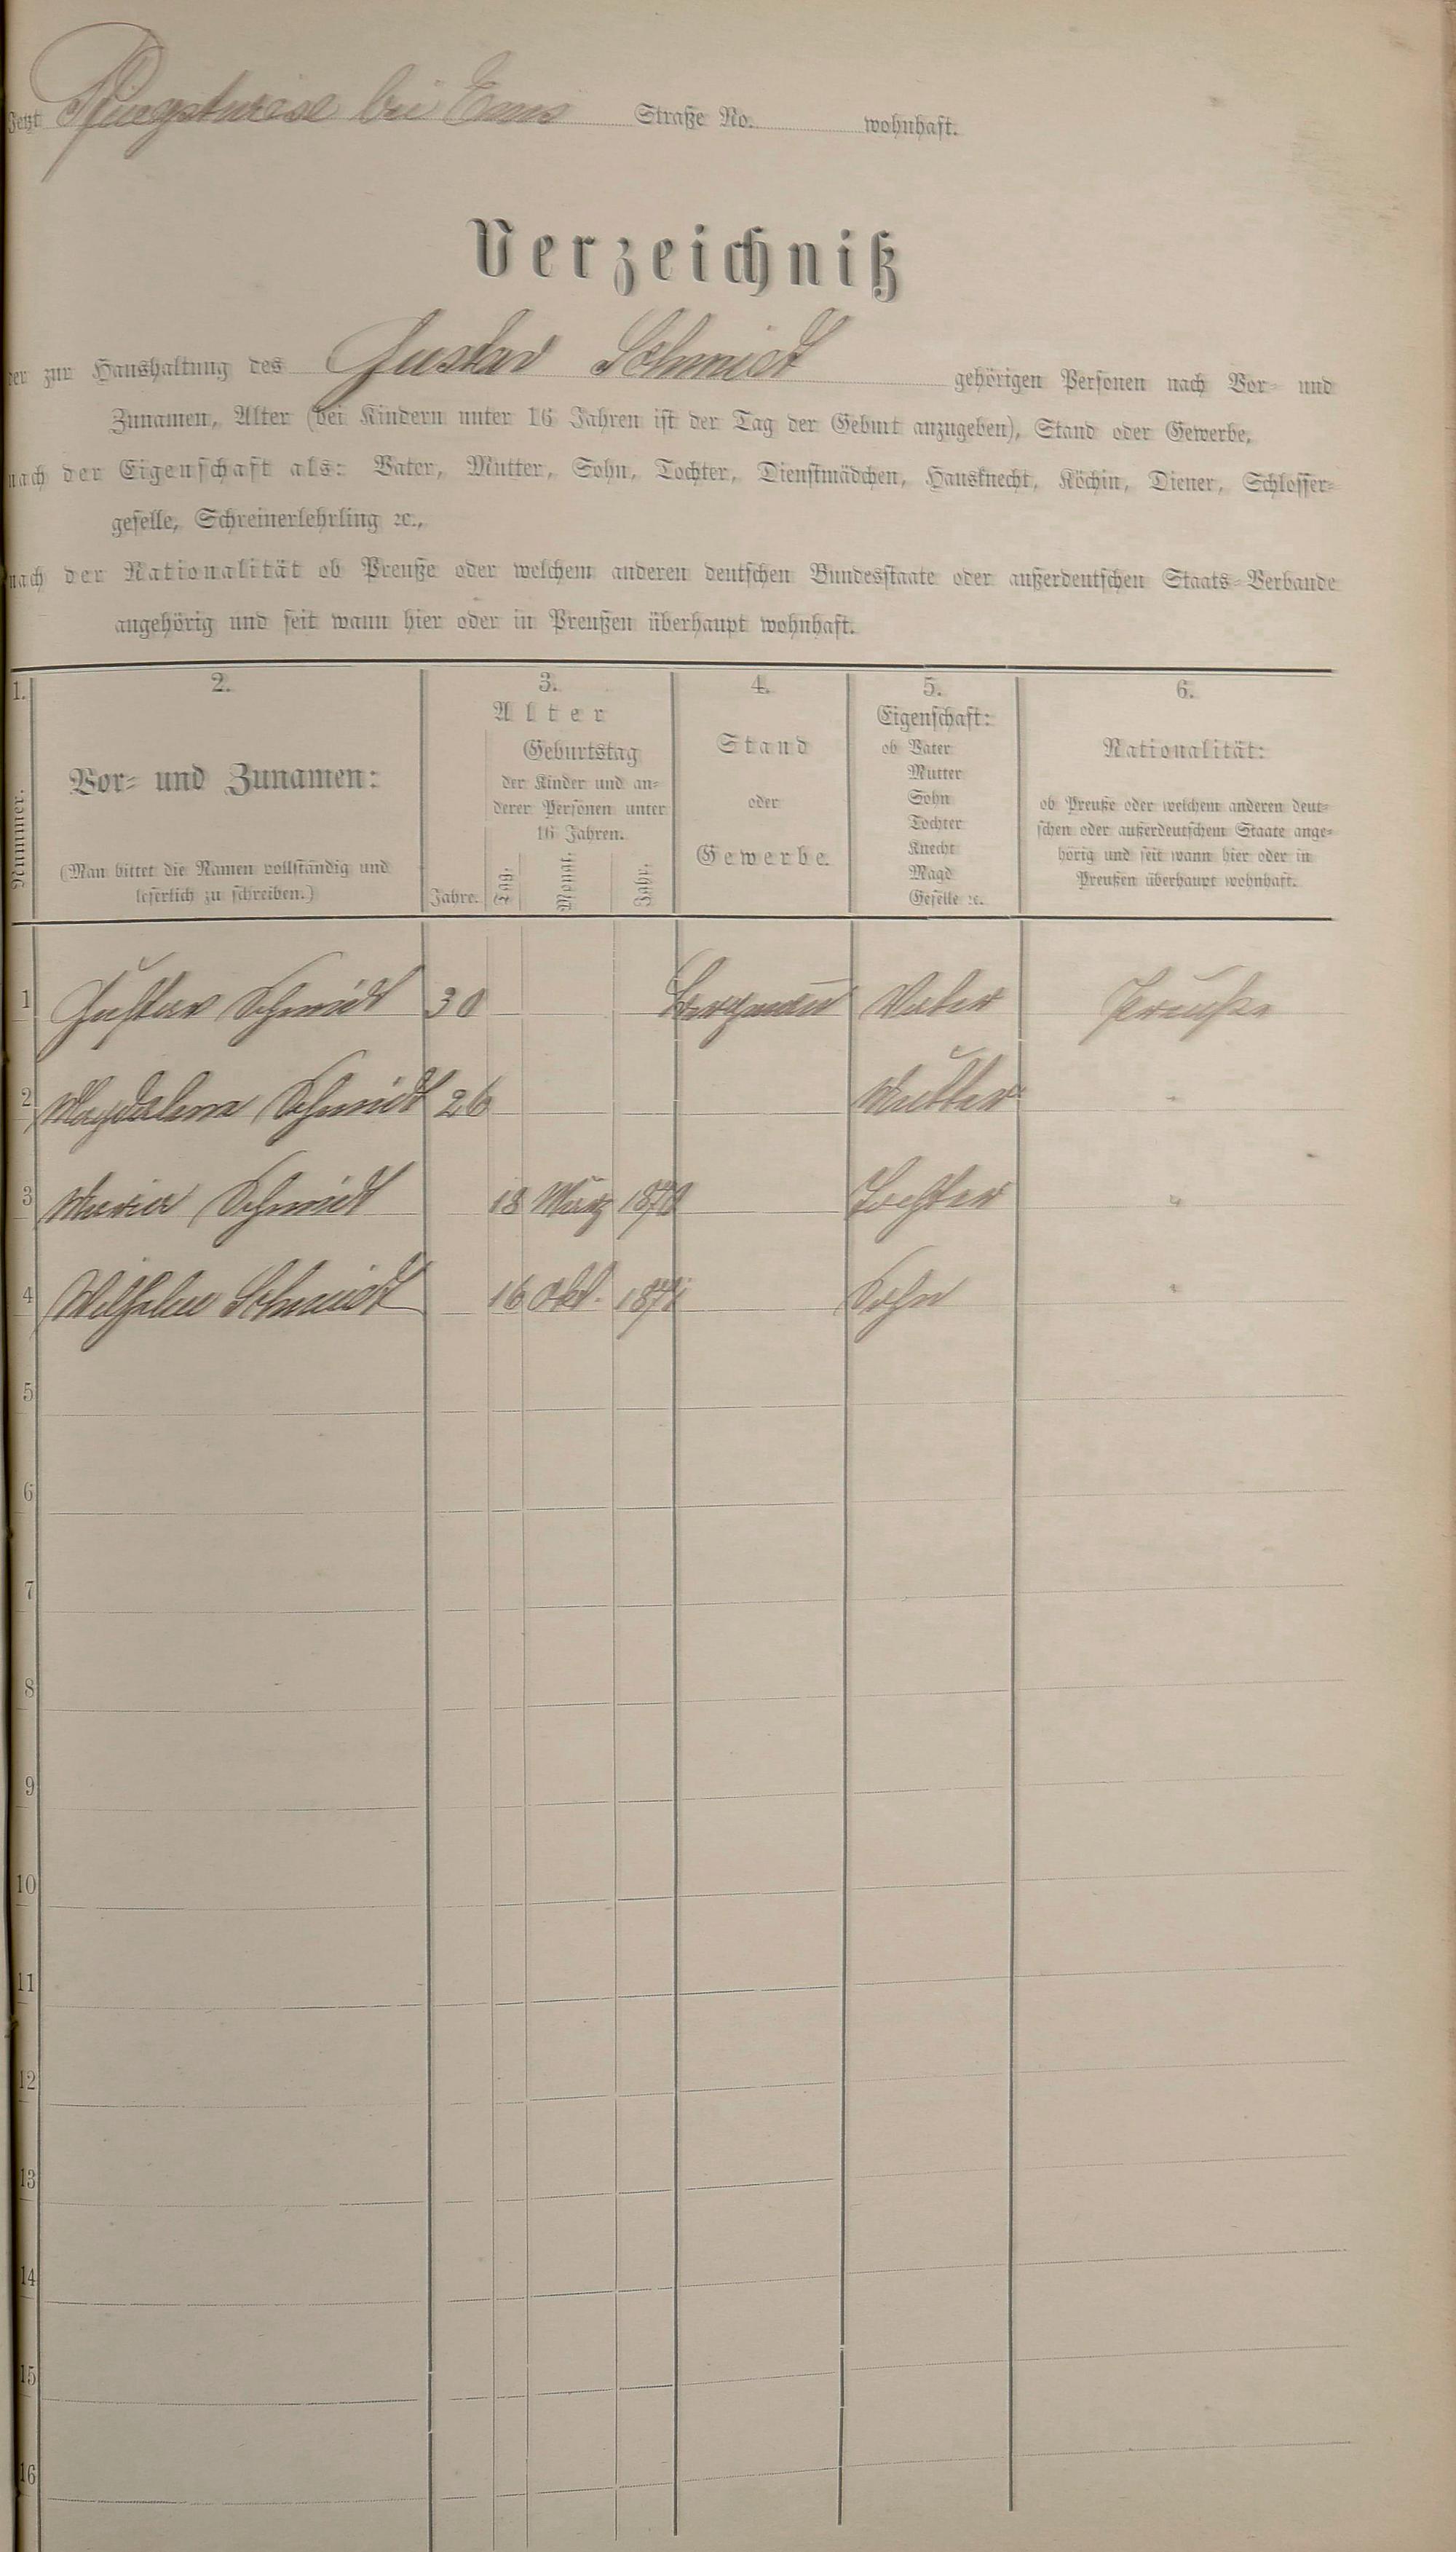 Jetzt Pfingstwiese bei Ems Straße No. wohnhaft.
Verzeichniß
der zur Haushaltung des Gustav Schmidt gehörigen Personen nach Vor- und
Zunamen, Alter (bei Kindern unter 16 Jahren ist der Tag der Geburt anzugeben), Stand oder Gewerbe,
nach der Eigenschaft als: Vater, Mutter, Sohn, Tochter, Dienstmädchen, Hausknecht, Köchin, Diener, Schlosser-
geselle, Schreinerlehrling ꝛc.,
nach der Nationalität ob Preuße oder welchem anderen deutschen Bundesstaate oder außerdeutschen Staats-Verbande
angehörig und seit wann hier oder in Preußen überhaupt wohnhaft.
1.
Nummer.
2.
Vor- und Zunamen:
(Man bittet die Namen vollständig und
leserlich zu schreiben.)
3.
Alter
Jahre.
Geburtstag
der Kinder und an-
derer Personen unter
16 Jahren.
Tag. Monat. Jahr.
4.
Stand
oder
Gewerbe.
5.
Eigenschaft:
ob Vater
Mutter
Sohn
Tochter
Knecht
Magd
Geselle ꝛc.
6.
Nationalität:
ob Preuße oder welchem anderen deut-
schen oder außerdeutschem Staate ange-
hörig und seit wann hier oder in
Preußen überhaupt wohnhaft.
1 Gustav Schmidt 30 Bergmann Vater Preuße
2 Magdalena Schmidt 26 Mutter "
3 Maria Schmidt 18 März Tochter "
4 Wilhelm Schmidt 16 Okt. Sohn "
5
6
7
8
9
10
11
12
13
14
15
16